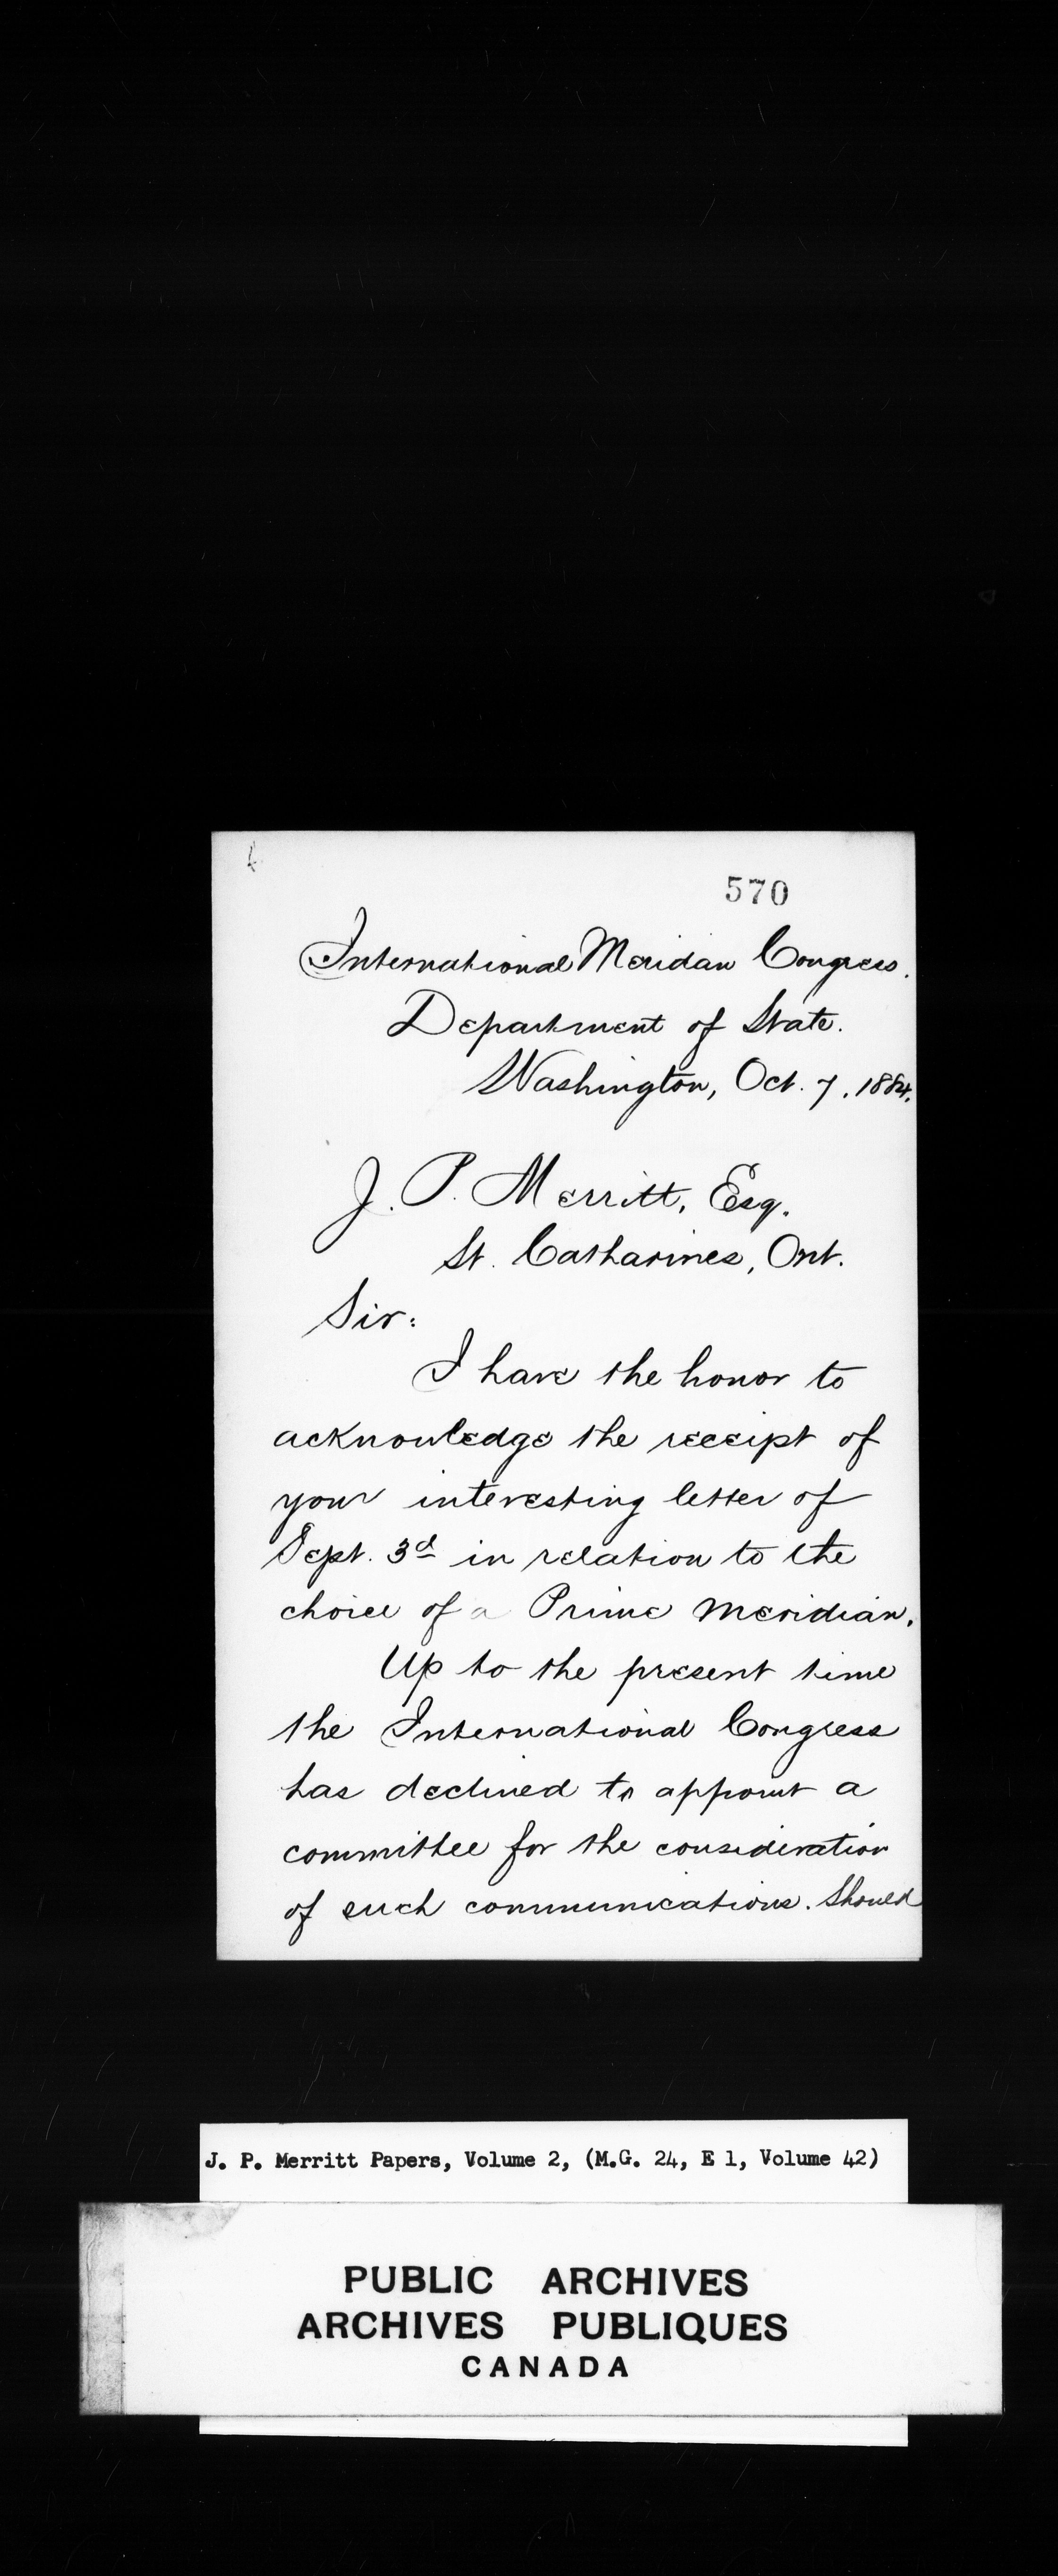 570
International Meridan Congress.
Department of State.
Washington, Oct. 7. 1884.
J. P. Merritt, Esq.
St. Catharines, Ont.
Sir:
I have the honor to
acknowledge the receipt of
your interesting letter of
Sept. 3d in relation to the
choice of a Prime Meridian.
Up to the present time
the International Congress
has declined to appoint a
committee for the consideration
of such communications. Should
J. P. Merritt Papers, Volume 2, (M.G. 24, E 1, Volume 42)
PUBLIC ARCHIVES
ARCHIVES PUBLIQUES
CANADA